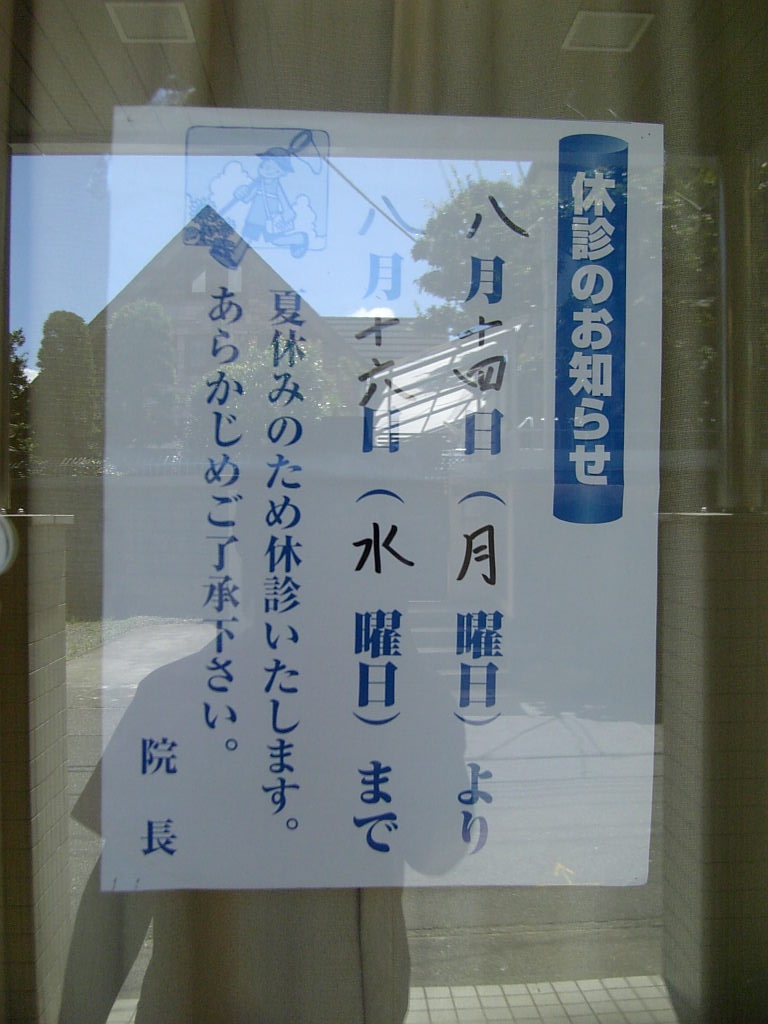 休診のお知らせ
八月十四日（月曜日）より
八月十六日（水曜日）まで
夏休みのため休診いたします。
あらかじめご了承下さい。
院長